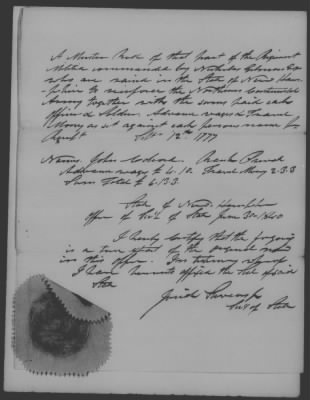 A Muster Roll of that part of the Regiment
Militia commanded by Nicholas Gilman Esq
who are raised in the State of New Hamp-
shire to reinforce the Northern Continental
Army together with the sums paid each
officer & Soldier. Advance wages & Travel
Money as set against each persons name for
August Sept 12th 1777
Names. John Rank Private
Advance wages £ 4.10. Travel Money 2.3.3
Sum Total £ 6.13.3.
State of New Hampshire
office of Sec. of State June 30 1840
I hereby certify that the foregoing
is a true of the original
in this office. In testimony whereof
I have hereunto affixed the seal of said
State
Sec of State